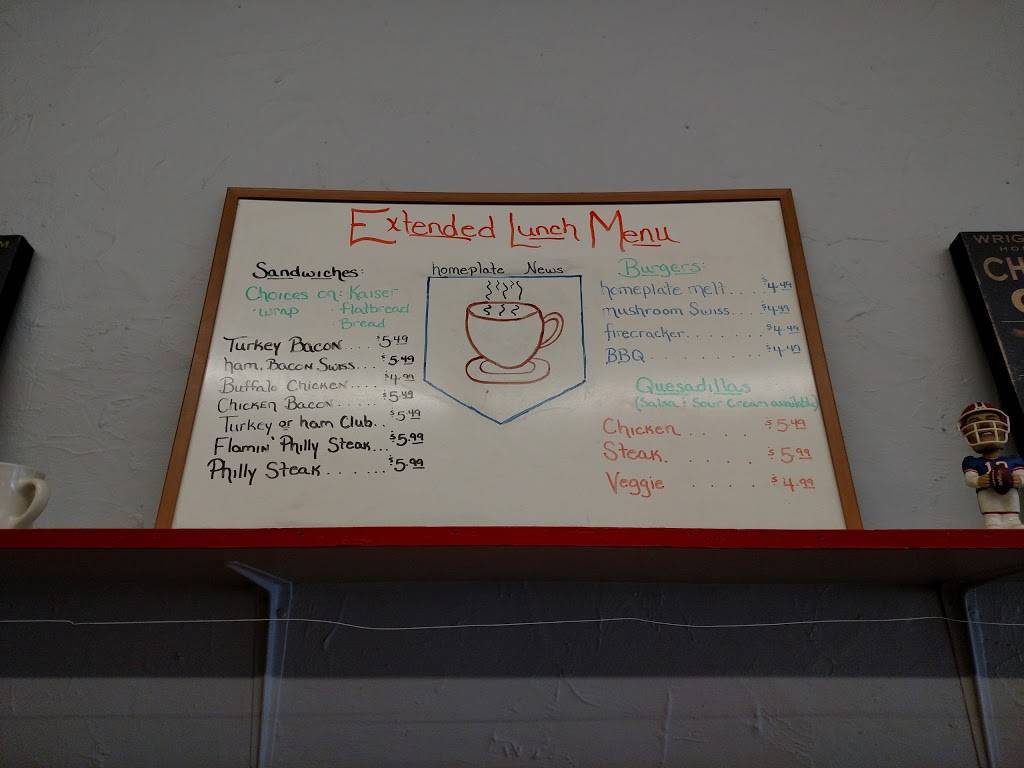 Extended Lunch Menu
Sandwiches:
Choices on: Kaiser
· wrap · flatbread
Bread
Turkey Bacon.... $5.49
ham, Bacon, Swiss... $5.49
Buffalo Chicken.... $4.99
Chicken Bacon..... $5.49
Turkey or ham Club.. $5.49
Flamin' Philly Steak... $5.99
Philly Steak....... $5.99
homeplate News
Burgers:
homeplate melt.... $4.49
mushroom Swiss.... $4.49
firecracker........ $4.49
BBQ .......... $4.49
Quesadillas
(Salsa & Sour Cream available)
Chicken .... $5.49
Steak. ..... $5.99
Veggie ..... $4.99
WRIG
CH